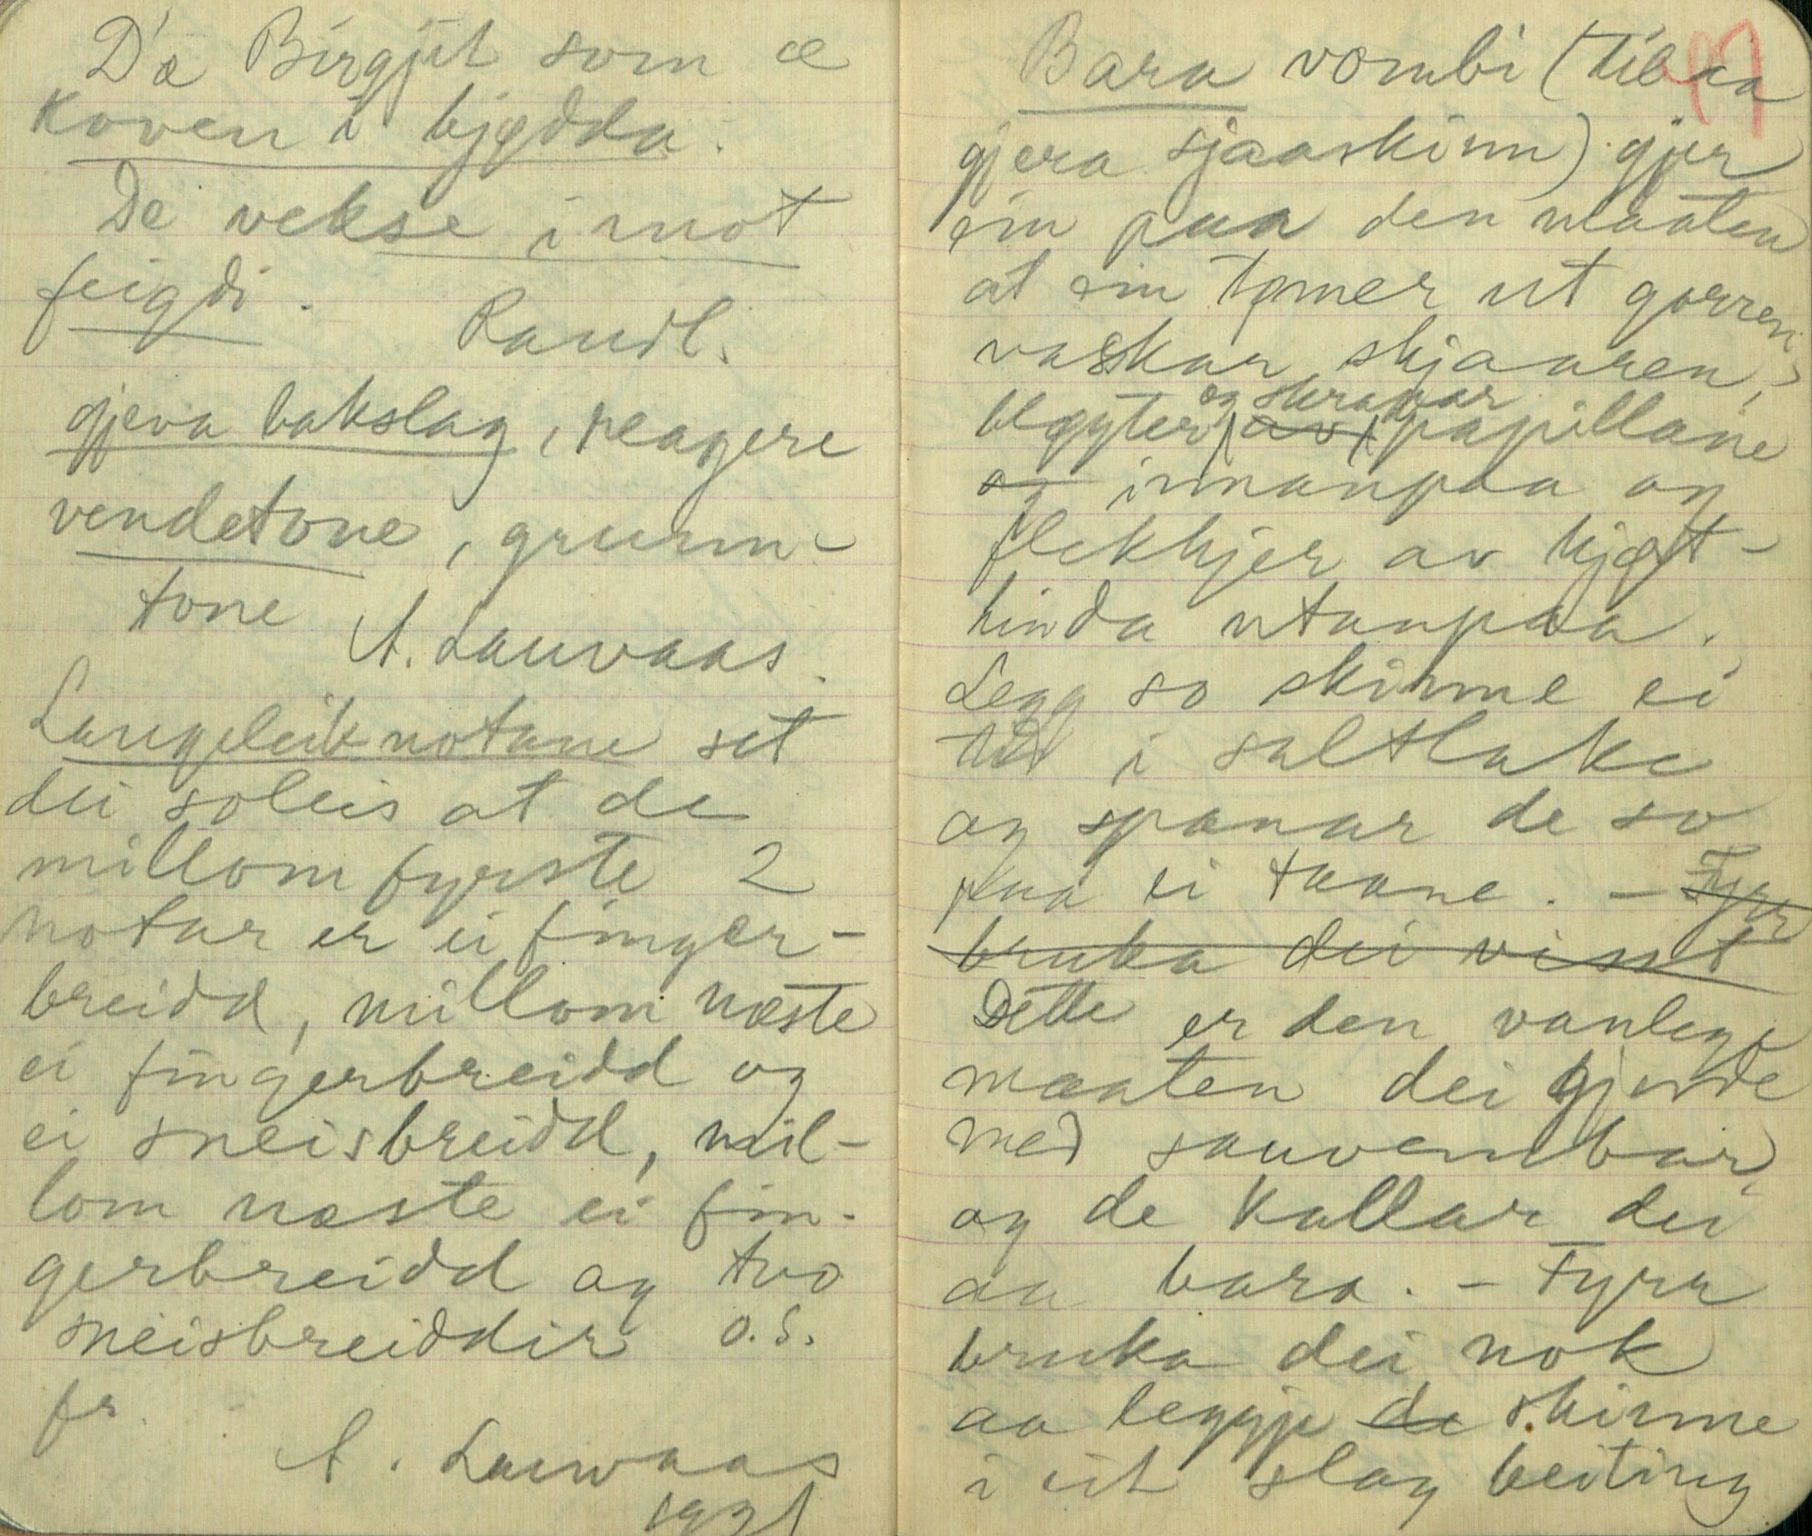 D'æ Birgjit som æ
koven i bjødda.
De vekse i mot
feigdi.
Raudl.
gjeva bakslag, reagere
vendetone, grunn-
tone
A. Lauvaas.
Langeleiknotane set
dei soleis at de
millom fyrste 2
notar er ei finger-
breidd, millom næste
ei fingerbreidd og
ei sneisbreidd, mil-
lom næste ei fin-
gerbreidd og tvo
sneisbreiddir o.s.
fr.
A. Lauvaas
1921
Bara vombi (til aa
gjera sjaaskinn) gjer
ein paa den maaten
at ein tømer ut gorren,
vaskar skjaaren,
og skrapar
bløyter (av) papillane
og innanpaa og
flekkjer av kjøt-
hinda utanpaa.
Legg so skinne ei
tid i saltlake
og spanar de so
paa ei taane. – Fyrr
bruka dei visst
Dette er den vanlege
maaten dei gjorde
med sauvembar,
og de kallar dei
aa bara. – Fyrr
bruka dei nok
aa leggje de skinne
i eit slag beiting